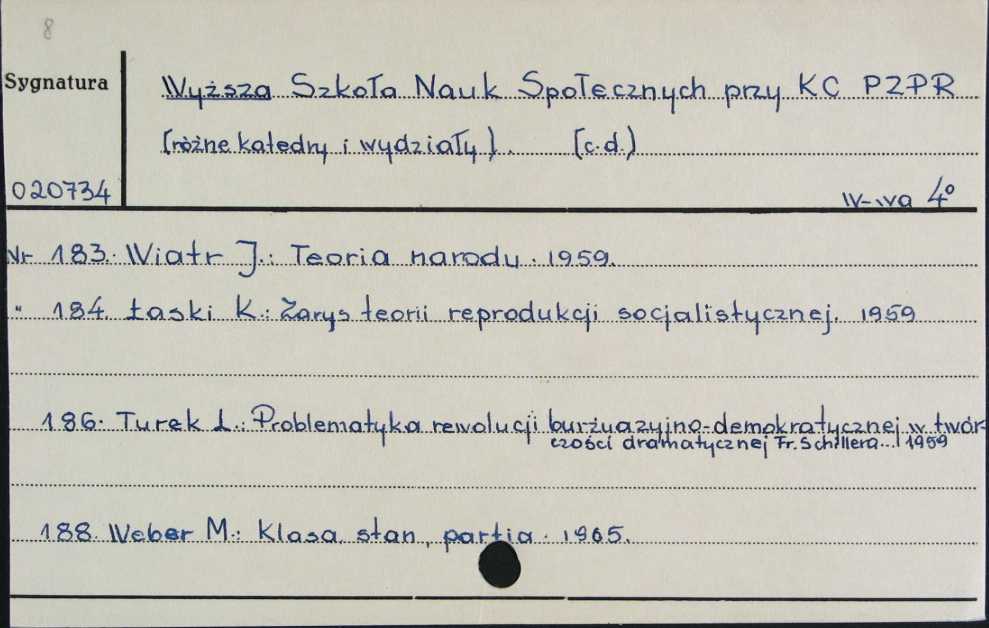 8
Sygnatura
Wyższa Szkoła Nauk Społecznych przy KC PZPR
(różne katedry i wydziały). (c.d.)
020734
W-wa 4º
Nr 183. Wiatr J.: Teoria narodu. 1959.
" 184. Łaski K.: Zarys teorii reprodukcji socjalistycznej. 1959
186. Turek L.: Problematyka rewolucji burżuazyjno-demokratycznej w twór-
czości dramatycznej Fr. Schillera... 1959
188. Weber M.: Klasa, stan, partia. 1965.